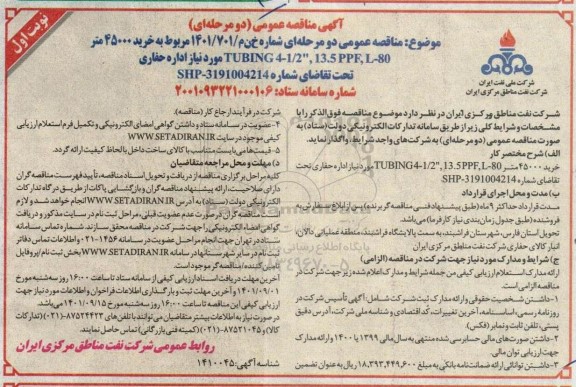 نوبت اول
آگهی مناقصه عمومی (دو مرحله‌ای)
موضوع: مناقصه عمومی دو مرحله‌ای شماره خ‌ن‌م/۱۴۰۱/۷۰۱ مربوط به خرید ۴۵۰۰۰ متر
TUBING 4-1/2", 13.5 PPF, L-80 مورد نیاز اداره حفاری
تحت تقاضای شماره SHP-3191004214
شماره سامانه ستاد: ۲۰۰۱۰۹۳۲۲۱۰۰۰۱۰۶
شرکت ملی نفت ایران
شرکت نفت مناطق مرکزی ایران
شرکت نفت مناطق مرکزی ایران در نظر دارد موضوع مناقصه فوق‌الذکر را با
مشخصات و شرایط کلی زیر از طریق سامانه تدارکات الکترونیکی دولت (ستاد) به
صورت مناقصه عمومی (دو مرحله‌ای) به شرکت‌های واجد شرایط، واگذار نماید.
الف) شرح مختصر کار
خرید ۴۵۰۰۰ متر TUBING4-1/2", 13.5PPF, L-80 مورد نیاز اداره حفاری تحت
تقاضای شماره SHP-3191004214
ب) مدت و محل اجرای قرارداد
مدت قرارداد حداکثر ۹ ماه (طبق پیشنهاد فنی مناقصه‌گر برنده) پس از ابلاغ سفارش به
فروشنده (طبق جدول زمان‌بندی نیاز کارفرما) می‌باشد.
تحویل استان فارس، شهرستان فراشبند، به سمت پالایشگاه فراشبند، منطقه عملیاتی دالان،
انبار کالای حفاری شرکت نفت مناطق مرکزی ایران
ج) شرایط و مدارک مورد نیاز جهت شرکت در مناقصه (الزامی)
ارائه مدارک استعلام ارزیابی کیفی من جمله شرایط و مدارک اعلام شده زیر جهت شرکت در
مناقصه الزامی است.
۱- داشتن شخصیت حقوقی و ارائه مدارک ثبت شرکت شامل: آگهی تأسیس شرکت در
روزنامه رسمی، اساسنامه، آخرین تغییرات، کد اقتصادی و شناسه ملی شرکت، آدرس دقیق
پستی، تلفن ثابت و نمابر (فکس).
۲- داشتن صورت‌های مالی حسابرسی شده منتهی به سال مالی ۱۳۹۹ یا ۱۴۰۰ و ارائه مدارک
جهت ارزیابی توان مالی
۳- داشتن توانایی ارائه ضمانت‌نامه بانکی به مبلغ ۱۸,۳۹۳,۴۴۹,۶۰۰ ریال به عنوان تضمین
شرکت در فرآیند ارجاع کار (مناقصه).
۴- عضویت در سامانه ستاد و داشتن گواهی امضای الکترونیکی و تکمیل فرم استعلام ارزیابی
کیفی موجود در سایت WWW.SETADIRAN.IR
۵- قیمت‌ها می‌بایست متناسب با کالای ساخت داخل با لحاظ کیفیت ارائه گردد.
د) مهلت و محل مراجعه متقاضیان
کلیه مراحل برگزاری مناقصه از دریافت و تحویل اسناد مناقصه، تأیید فهرست مناقصه‌گران
دارای صلاحیت، ارائه پیشنهاد مناقصه‌گران و بازگشایی پاکات از طریق درگاه تدارکات
الکترونیکی دولت (ستاد) به آدرس WWW.SETADIRAN.IR انجام خواهد شد و لازم
است مناقصه‌گران در صورت عدم عضویت قبلی، مراحل ثبت نام در سایت مذکور و دریافت
گواهی امضای الکترونیکی را جهت شرکت در مناقصه محقق سازند. شماره تماس سامانه
ستاد در تهران جهت انجام مراحل عضویت در سامانه ۱۴۵۶-۰۲۱ و اطلاعات تماس دفاتر
ثبت نام در سایر شهرستان‌ها در سامانه WWW.SETADIRAN.IR بخش ثبت نام/پروفایل
تأمین‌کننده/مناقصه‌گر موجود است.
آخرین مهلت دریافت اسناد ارزیابی کیفی از سامانه ستاد تا ساعت ۱۶:۰۰ روز سه‌شنبه مورخ
۱۴۰۱/۰۹/۰۱ و آخرین مهلت ثبت و بارگذاری اطلاعات فراخوان و اطلاعات مورد نیاز جهت
ارزیابی کیفی این مناقصه تا ساعت ۱۶:۰۰ روز سه‌شنبه مورخ ۱۴۰۱/۰۹/۱۵ می‌باشد.
در صورت نیاز به اطلاعات بیشتر متقاضیان می‌توانند با تلفن‌های ۸۷۵۲۴۴۲۳-(۰۲۱) (تدارکات
کالا) و ۸۷۵۲۱۰۴۵-(۰۲۱) (کمیته فنی بازرگانی) تماس حاصل نمایند.
روابط عمومی شرکت نفت مناطق مرکزی ایران
شناسه آگهی: ۱۴۱۰۰۴۵